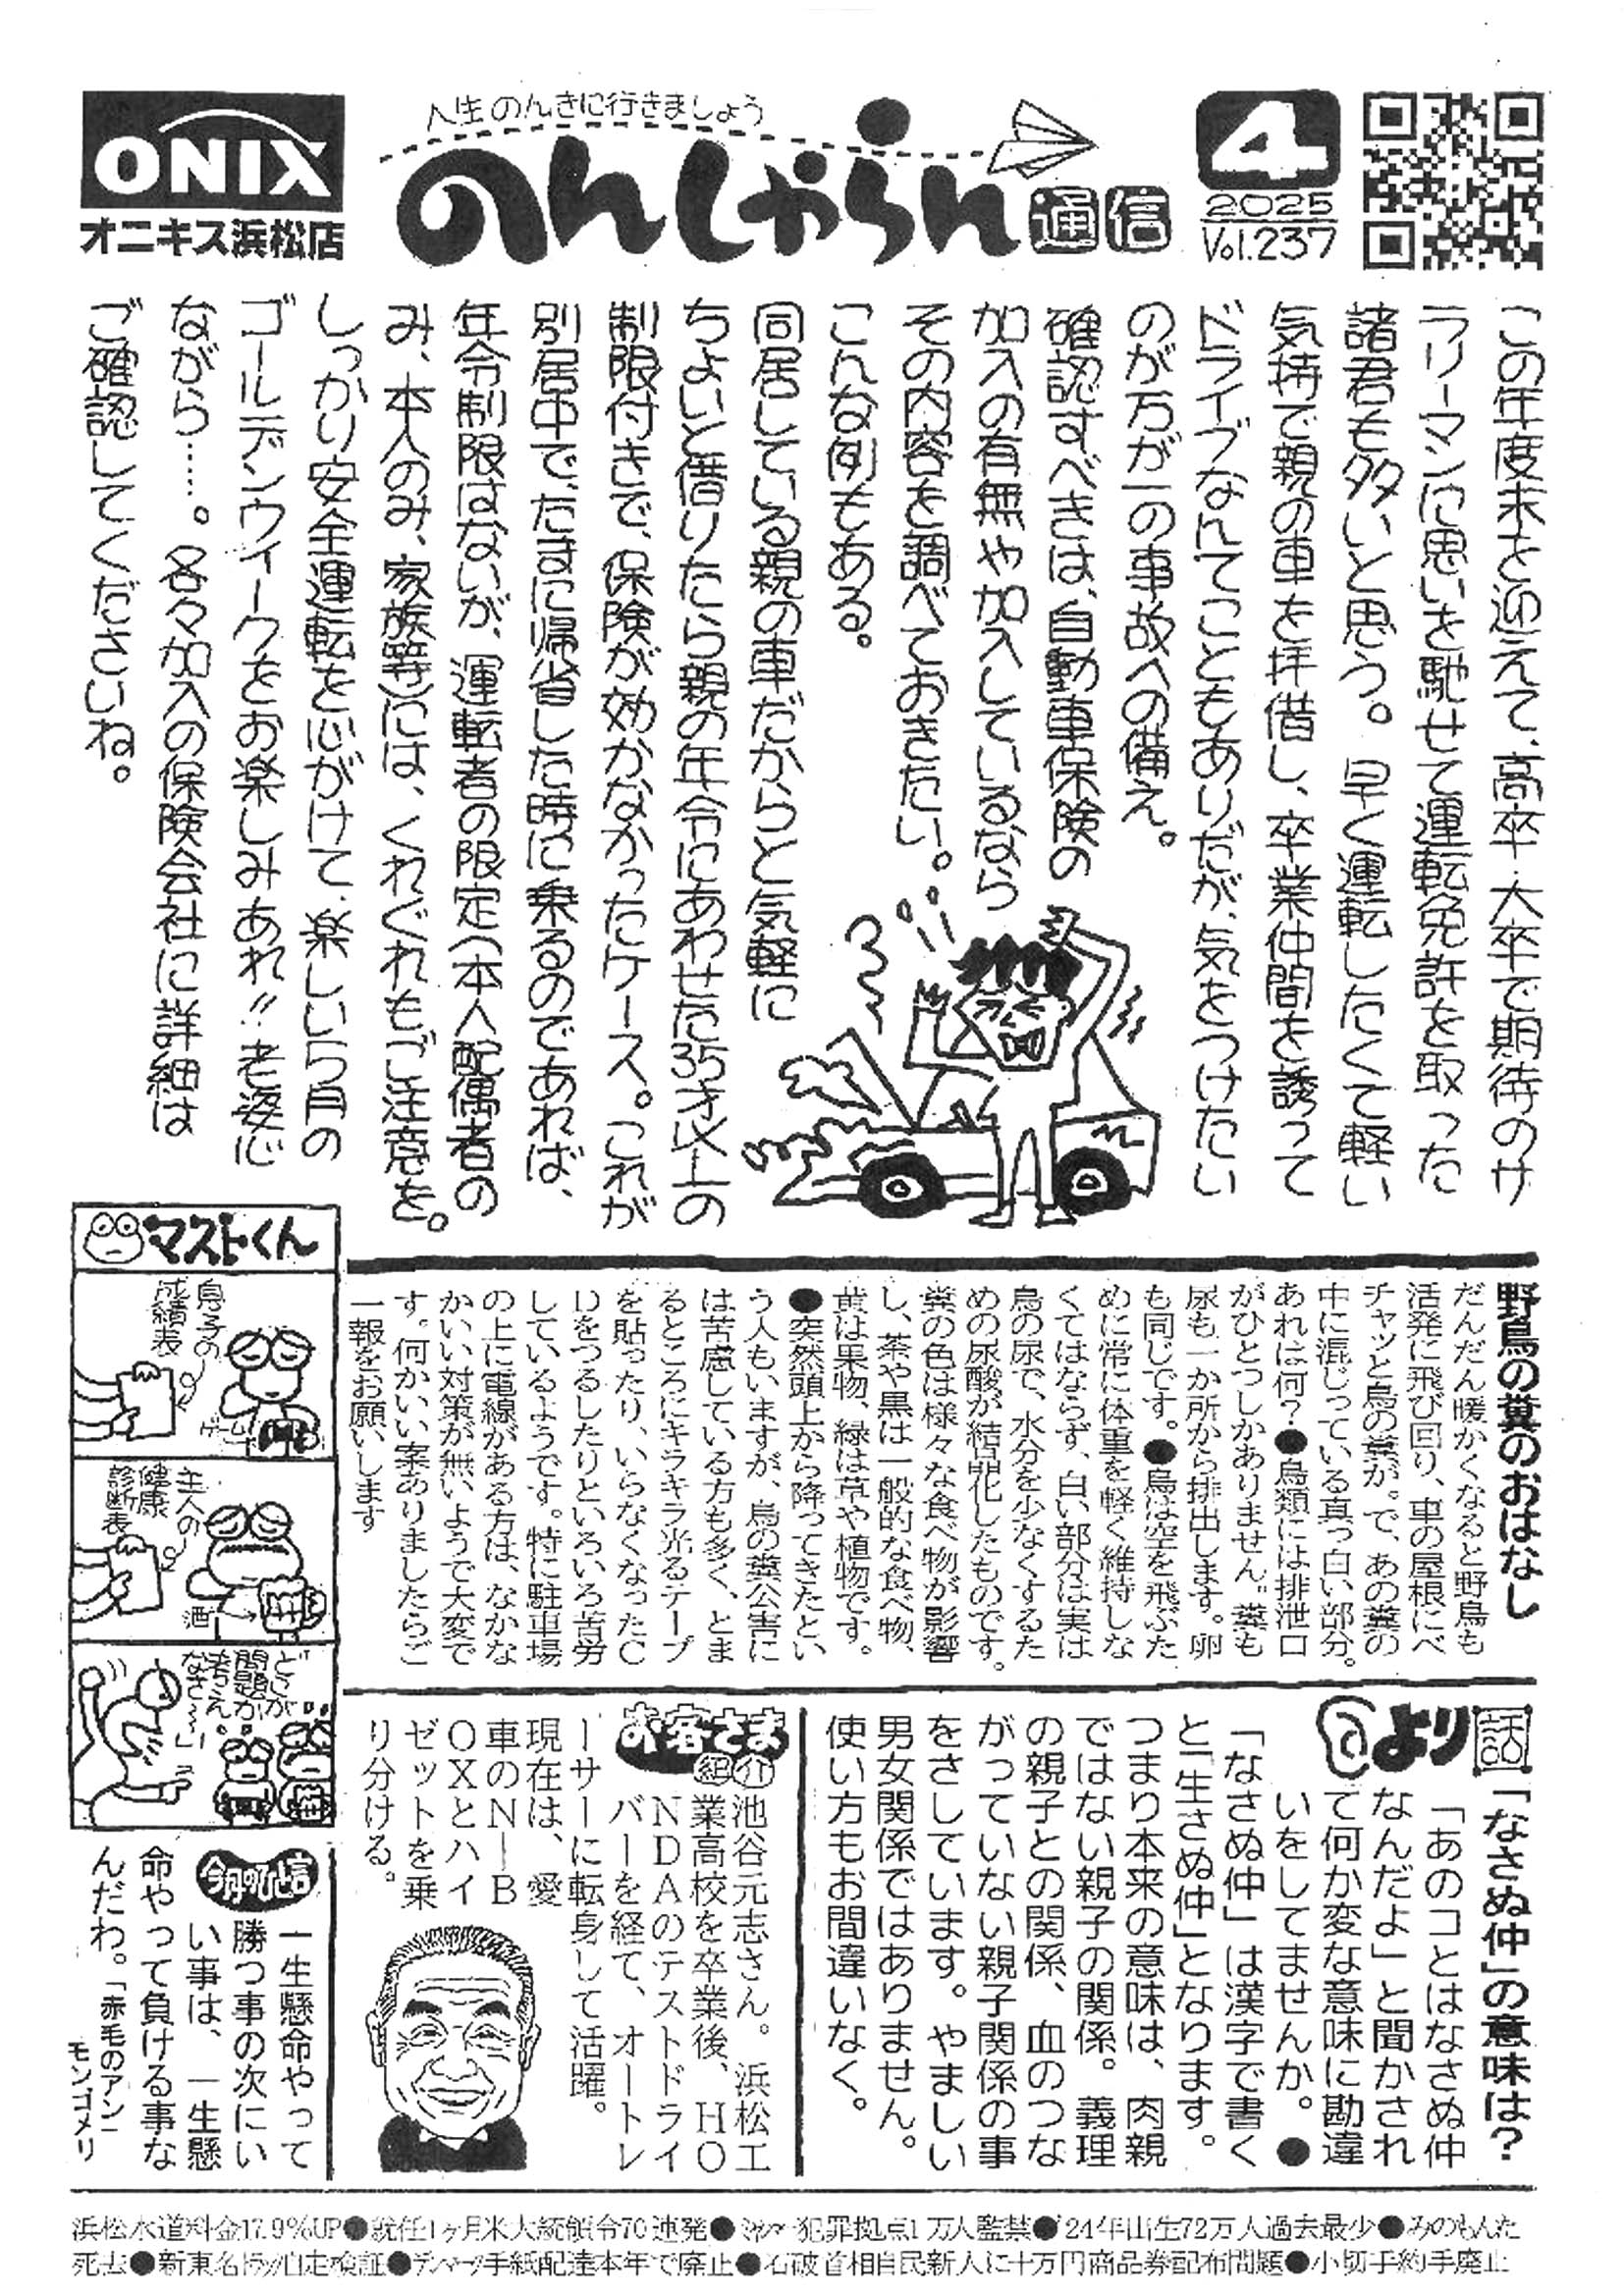 ONIX
オニキス浜松店
人生のんきに行きましょう
のんしゃらん通信
4
2025
Vol.237
この年度末を迎えて、高卒・大卒で期待のサ
ラリーマンに思いを馳せて運転免許を取った
諸君も多いと思う。早く運転したくて軽い
気持で親の車を拝借し、卒業仲間を誘って
ドライブなんてこともありだが、気をつけたい
のが万が一の事故への備え。
確認すべきは、自動車保険の
加入の有無や加入しているなら
その内容を調べておきたい。
こんな例もある。
同居している親の車だからと気軽に
ちょいと借りたら親の年令にあわせた35才以上の
制限付きで、保険が効かなかったケース。これが
別居中で、たまに帰省した時に乗るのであれば、
年令制限はないが、運転者の限定(本人配偶者の
み、本人のみ、家族等)には、くれぐれもご注意を。
しっかり安全運転を心がけて、楽しい5月の
ゴールデンウィークをお楽しみあれ!!老婆心
ながら……。各々加入の保険会社に詳細は
ご確認してくださいね。
野鳥の糞のおはなし
だんだん暖かくなると野鳥も
活発に飛び回り、車の屋根にベ
チャッと鳥の糞が。で、あの糞の
中に混じっている真っ白い部分。
あれは何?●鳥類には排泄口
がひとつしかありません。糞も
尿も一か所から排出します。卵
も同じです。●鳥は空を飛ぶた
めに常に体重を軽く維持しな
くてはならず、白い部分は実は
鳥の尿で、水分を少なくするた
めの尿酸が結晶化したものです。
糞の色は様々な食べ物が影響
し、茶や黒は一般的な食べ物、
黄は果物、緑は草や植物です。
●突然頭上から降ってきたとい
う人もいますが、鳥の糞公害に
は苦慮している方も多く、とま
るところにキラキラ光るテープ
を貼ったり、いらなくなったC
Dをつるしたりといろいろ苦労
しているようです。特に駐車場
の上に電線がある方は、なかな
かいい対策が無いようで大変で
す。何かいい案ありましたらご
一報をお願いします
マストくん
息子の
成績表
ゲーム
主人の
健康
診断表
酒
どこが
問題か
考え
なさ〜い
話
より
「なさぬ仲」の意味は?
「あのコとはなさぬ仲
なんだよ」と聞かされ
て何か変な意味に勘違
いをしてませんか。●
「なさぬ仲」は漢字で書く
と「生さぬ仲」となります。
つまり本来の意味は、肉親
ではない親子の関係。義理
の親子との関係、血のつな
がっていない親子関係の事
をさしています。やましい
男女関係ではありません。
使い方もお間違いなく。
お客さま
紹介
池谷元志さん。浜松工
業高校を卒業後、HO
NDAのテストドライ
バーを経て、オートレ
ーサーに転身して活躍。
現在は、愛
車のN−B
OXとハイ
ゼットを乗
り分ける。
今月のひと言
一生懸命やって
勝つ事の次にい
い事は、一生懸
命やって負ける事な
んだわ。「赤毛のアン」
モンゴメリ
浜松水道料金17.9%UP●就任1ヶ月米大統領令70連発●ミャンマー犯罪拠点1万人監禁●'24年出生72万人過去最少●みのもんた
死去●新東名トラック自走検証●デンマーク手紙配達本年で廃止●石破首相自民新人に十万円商品券配布問題●小切手約手廃止